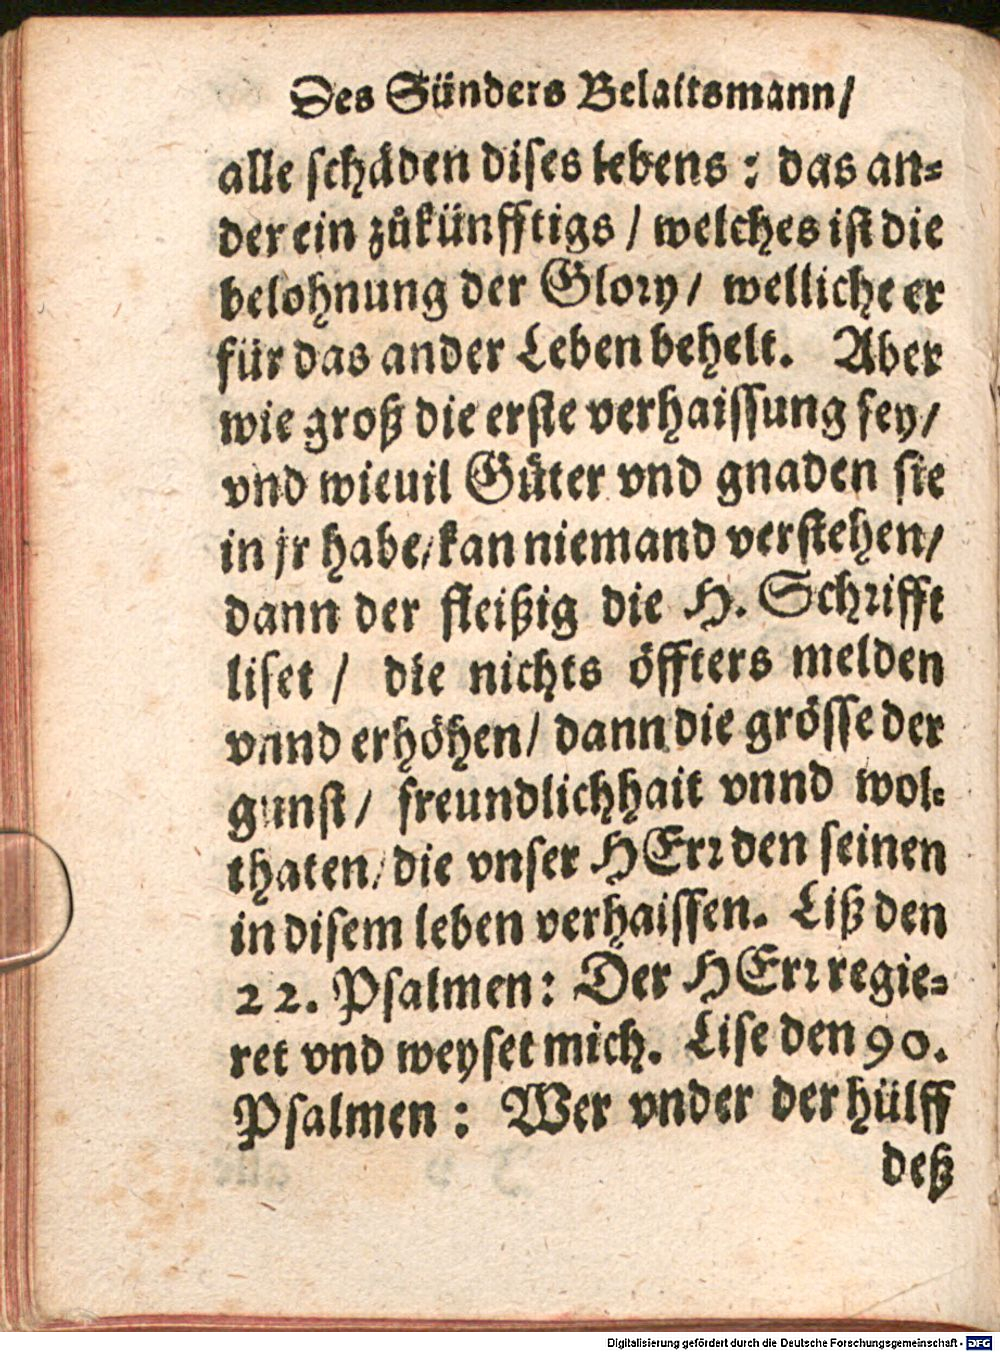 Des Sünders Belaitsmann/
alle schäden dises lebens : das an-
der ein zůkünfftigs / welches ist die
belohnung der Glory / welliche er
für das ander Leben behelt. Aber
wie groß die erste verhaissung sey/
vnd wieuil Güter vnd gnaden sie
in jr habe/ kan niemand verstehen/
dann der fleißig die H. Schrifft
liset / die nichts öffters melden
vnnd erhöhen/ dann die grösse der
gunst/ freundlichhait vnnd wol-
thaten/ die vnser HErr den seinen
in disem leben verhaissen. Liß den
22. Psalmen: Der HErr regie-
ret vnd weyset mich. Lise den 90.
Psalmen : Wer vnder der hülff
deß
Digitalisierung gefördert durch die Deutsche Forschungsgemeinschaft - DFG